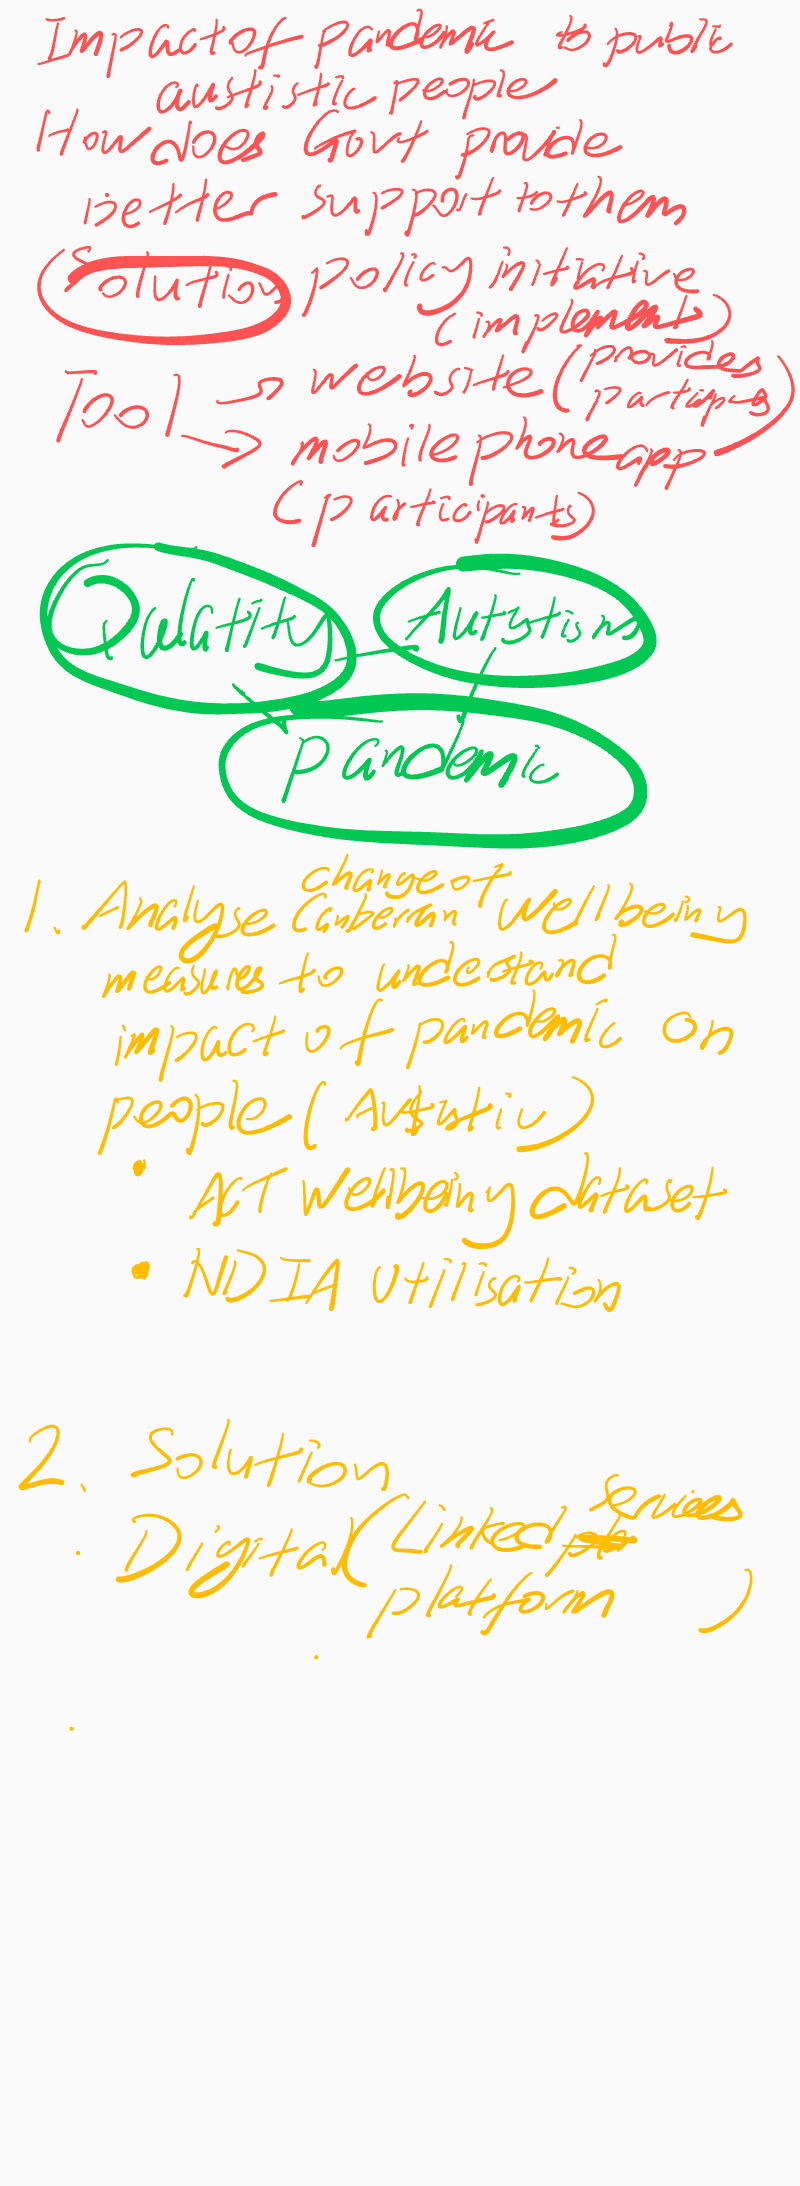 Impact of pandemic to public
austistic people
How does Govt provide
better support to them
(Solution policy initiative
(implement)
Tool → website (provides
participants)
→ mobile phone app
(participants)
Qulatity Autytism
pandemic
change of
1. Analyse Canberran Wellbeing
measures to undestand
impact of pandemic on
people (
• ACT Wellbeing dataset
• NDIA Utilisation
2. Solution
Services
Digital (Linked
platform )